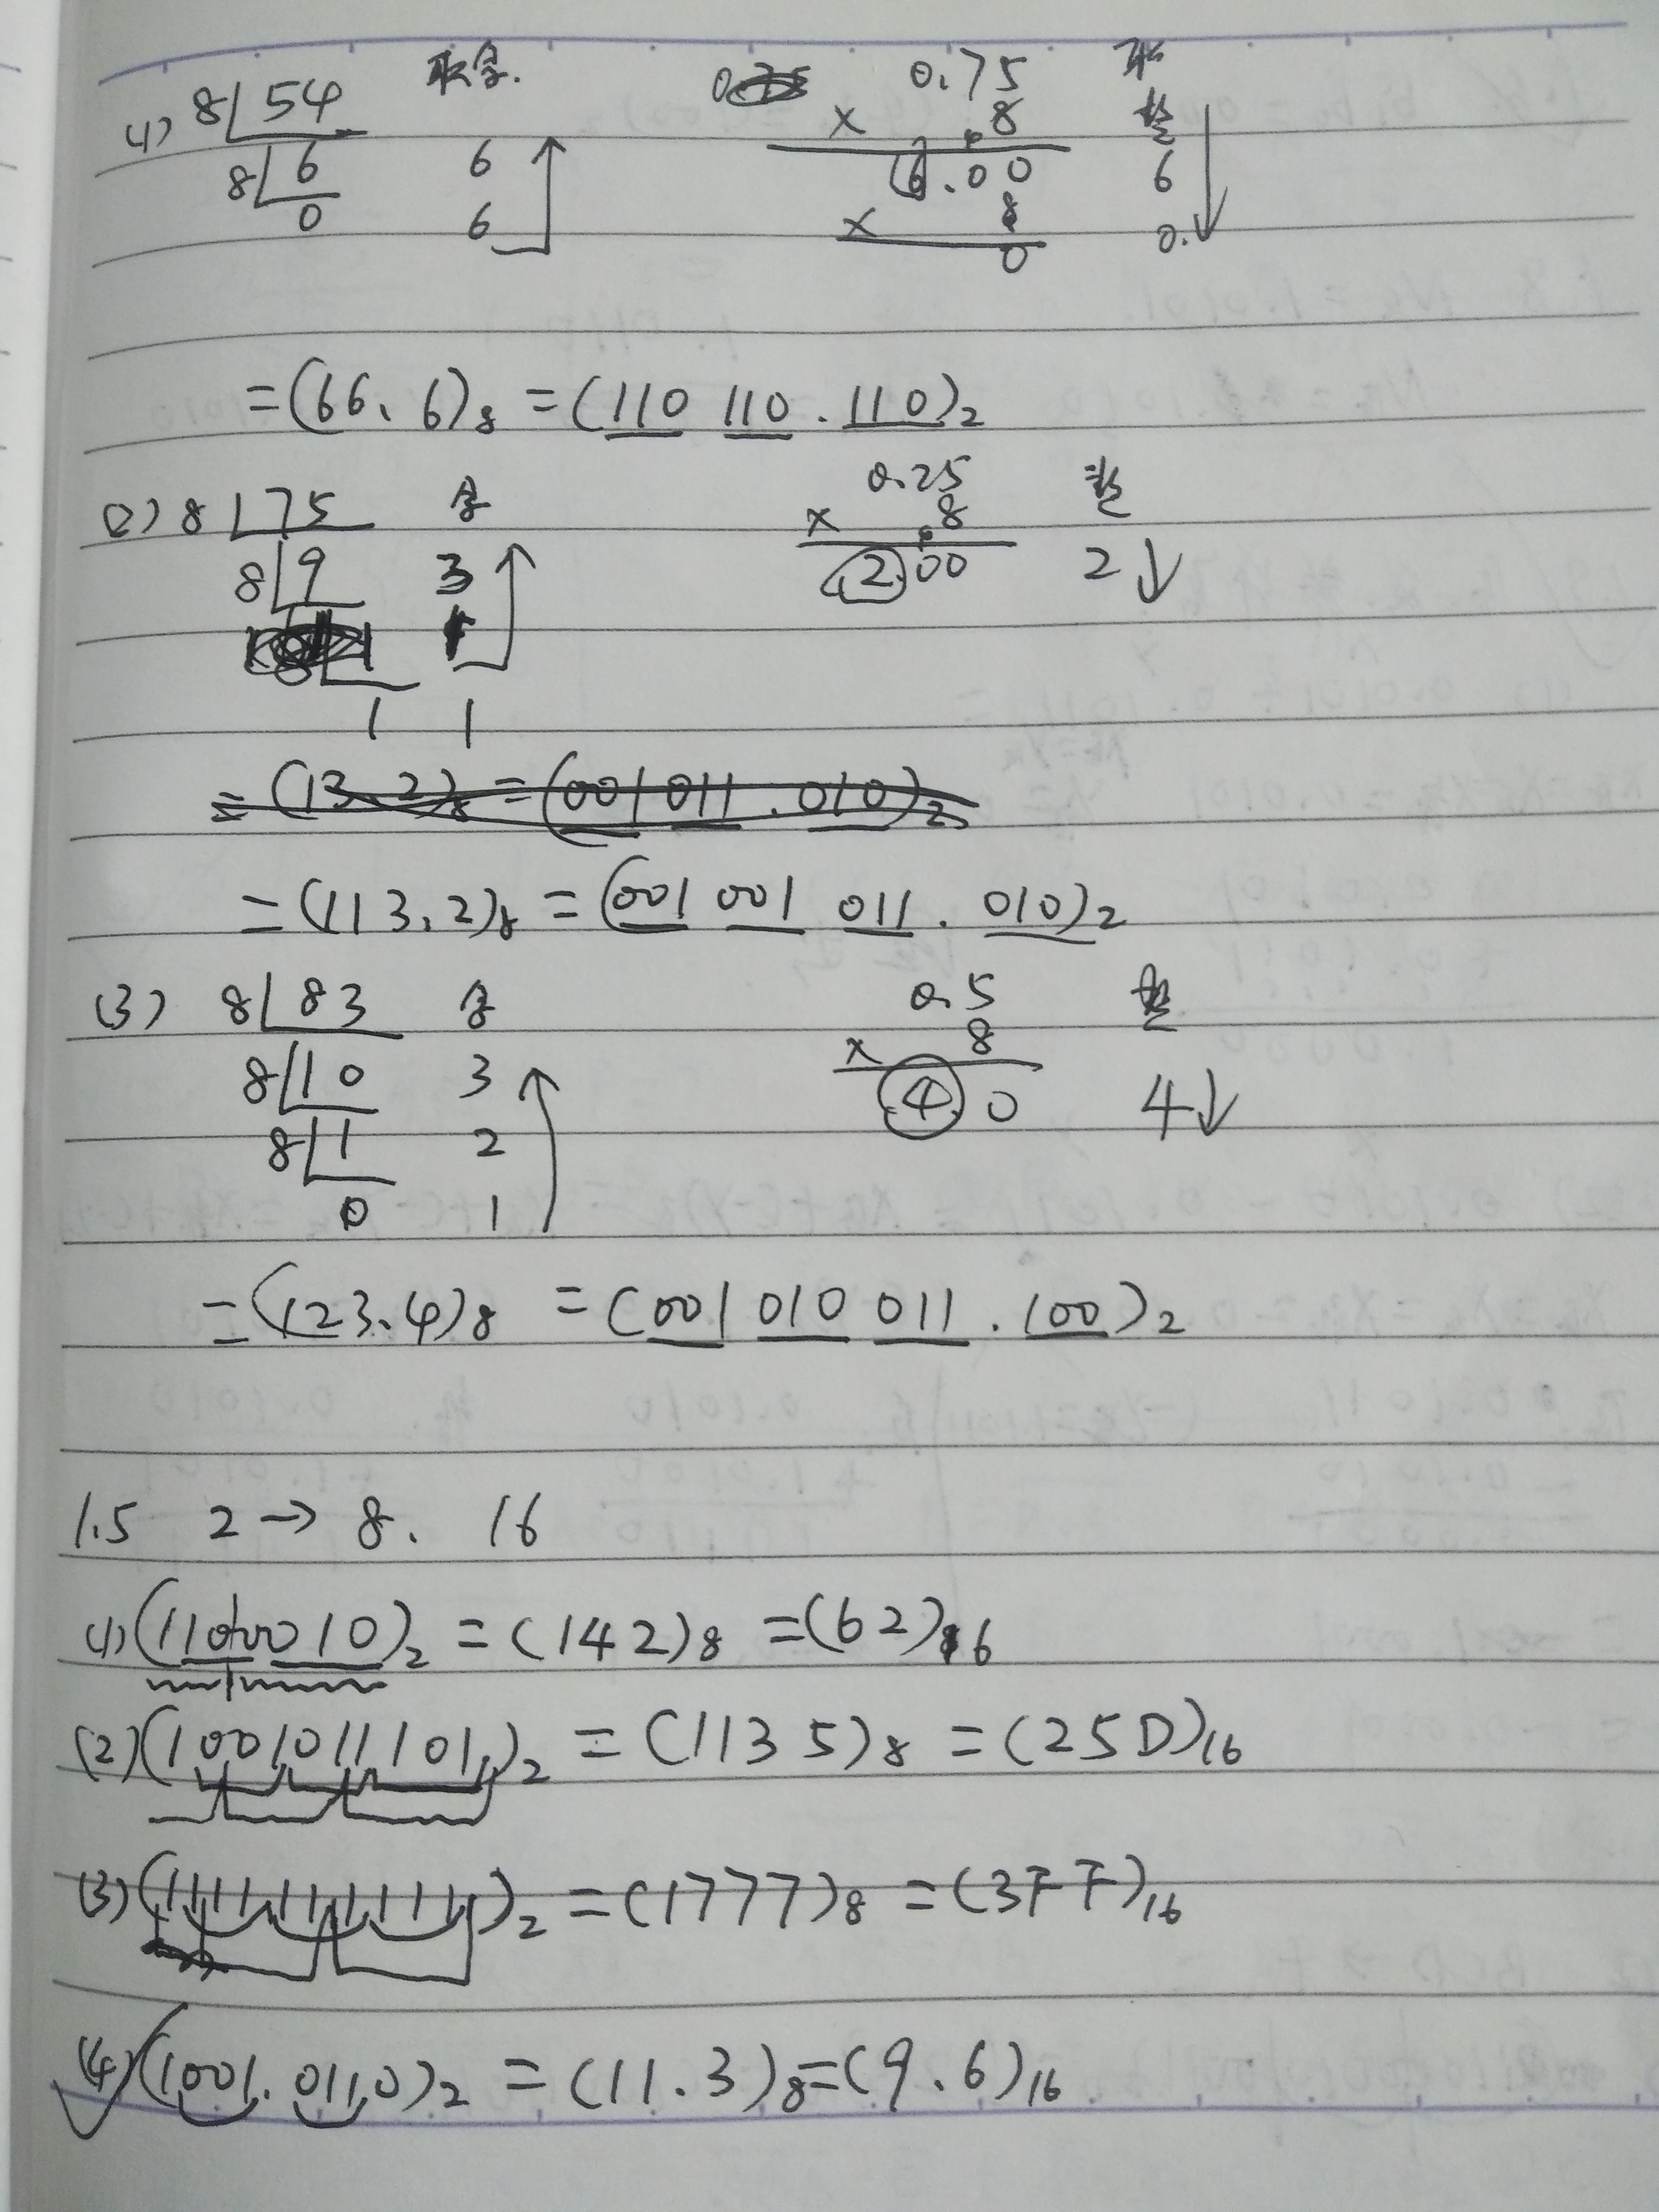 (1) 8 54 取余. 0.75 取整
× 8
8 6 6 6.00 6
× 8
0 6 0 0.
=(66.6)8 =(110 110 . 110)2
(2) 8 75 余 0.25 整
× 8
8 9 3 2.00 2
1 1
=(13.2)8=(001 011 . 010)2
=(113.2)8 =(001 001 011 . 010)2
(3) 8 83 余 0.5 整
× 8
8 10 3 4.0 4
8 1 2
0 1
=(123.4)8 =(001 010 011 . 100)2
1.5 2→8. 16
(1)(1100010)2 =(142)8 =(62)16
(2)(1001011101)2 =(1135)8 =(25D)16
(3)(1111111111)2 =(1777)8 =(3FF)16
(4)(1001.0110)2 =(11.3)8=(9.6)16